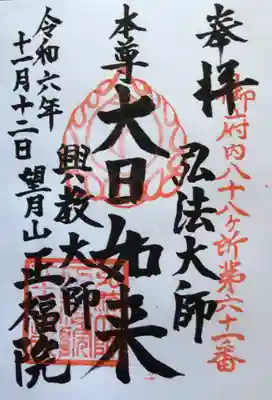 奉拝
御府内八十八ヶ所第六十一番
弘法大師
本尊 大日如来
興教大師
望月山 正福院
令和六年
十一月十二日